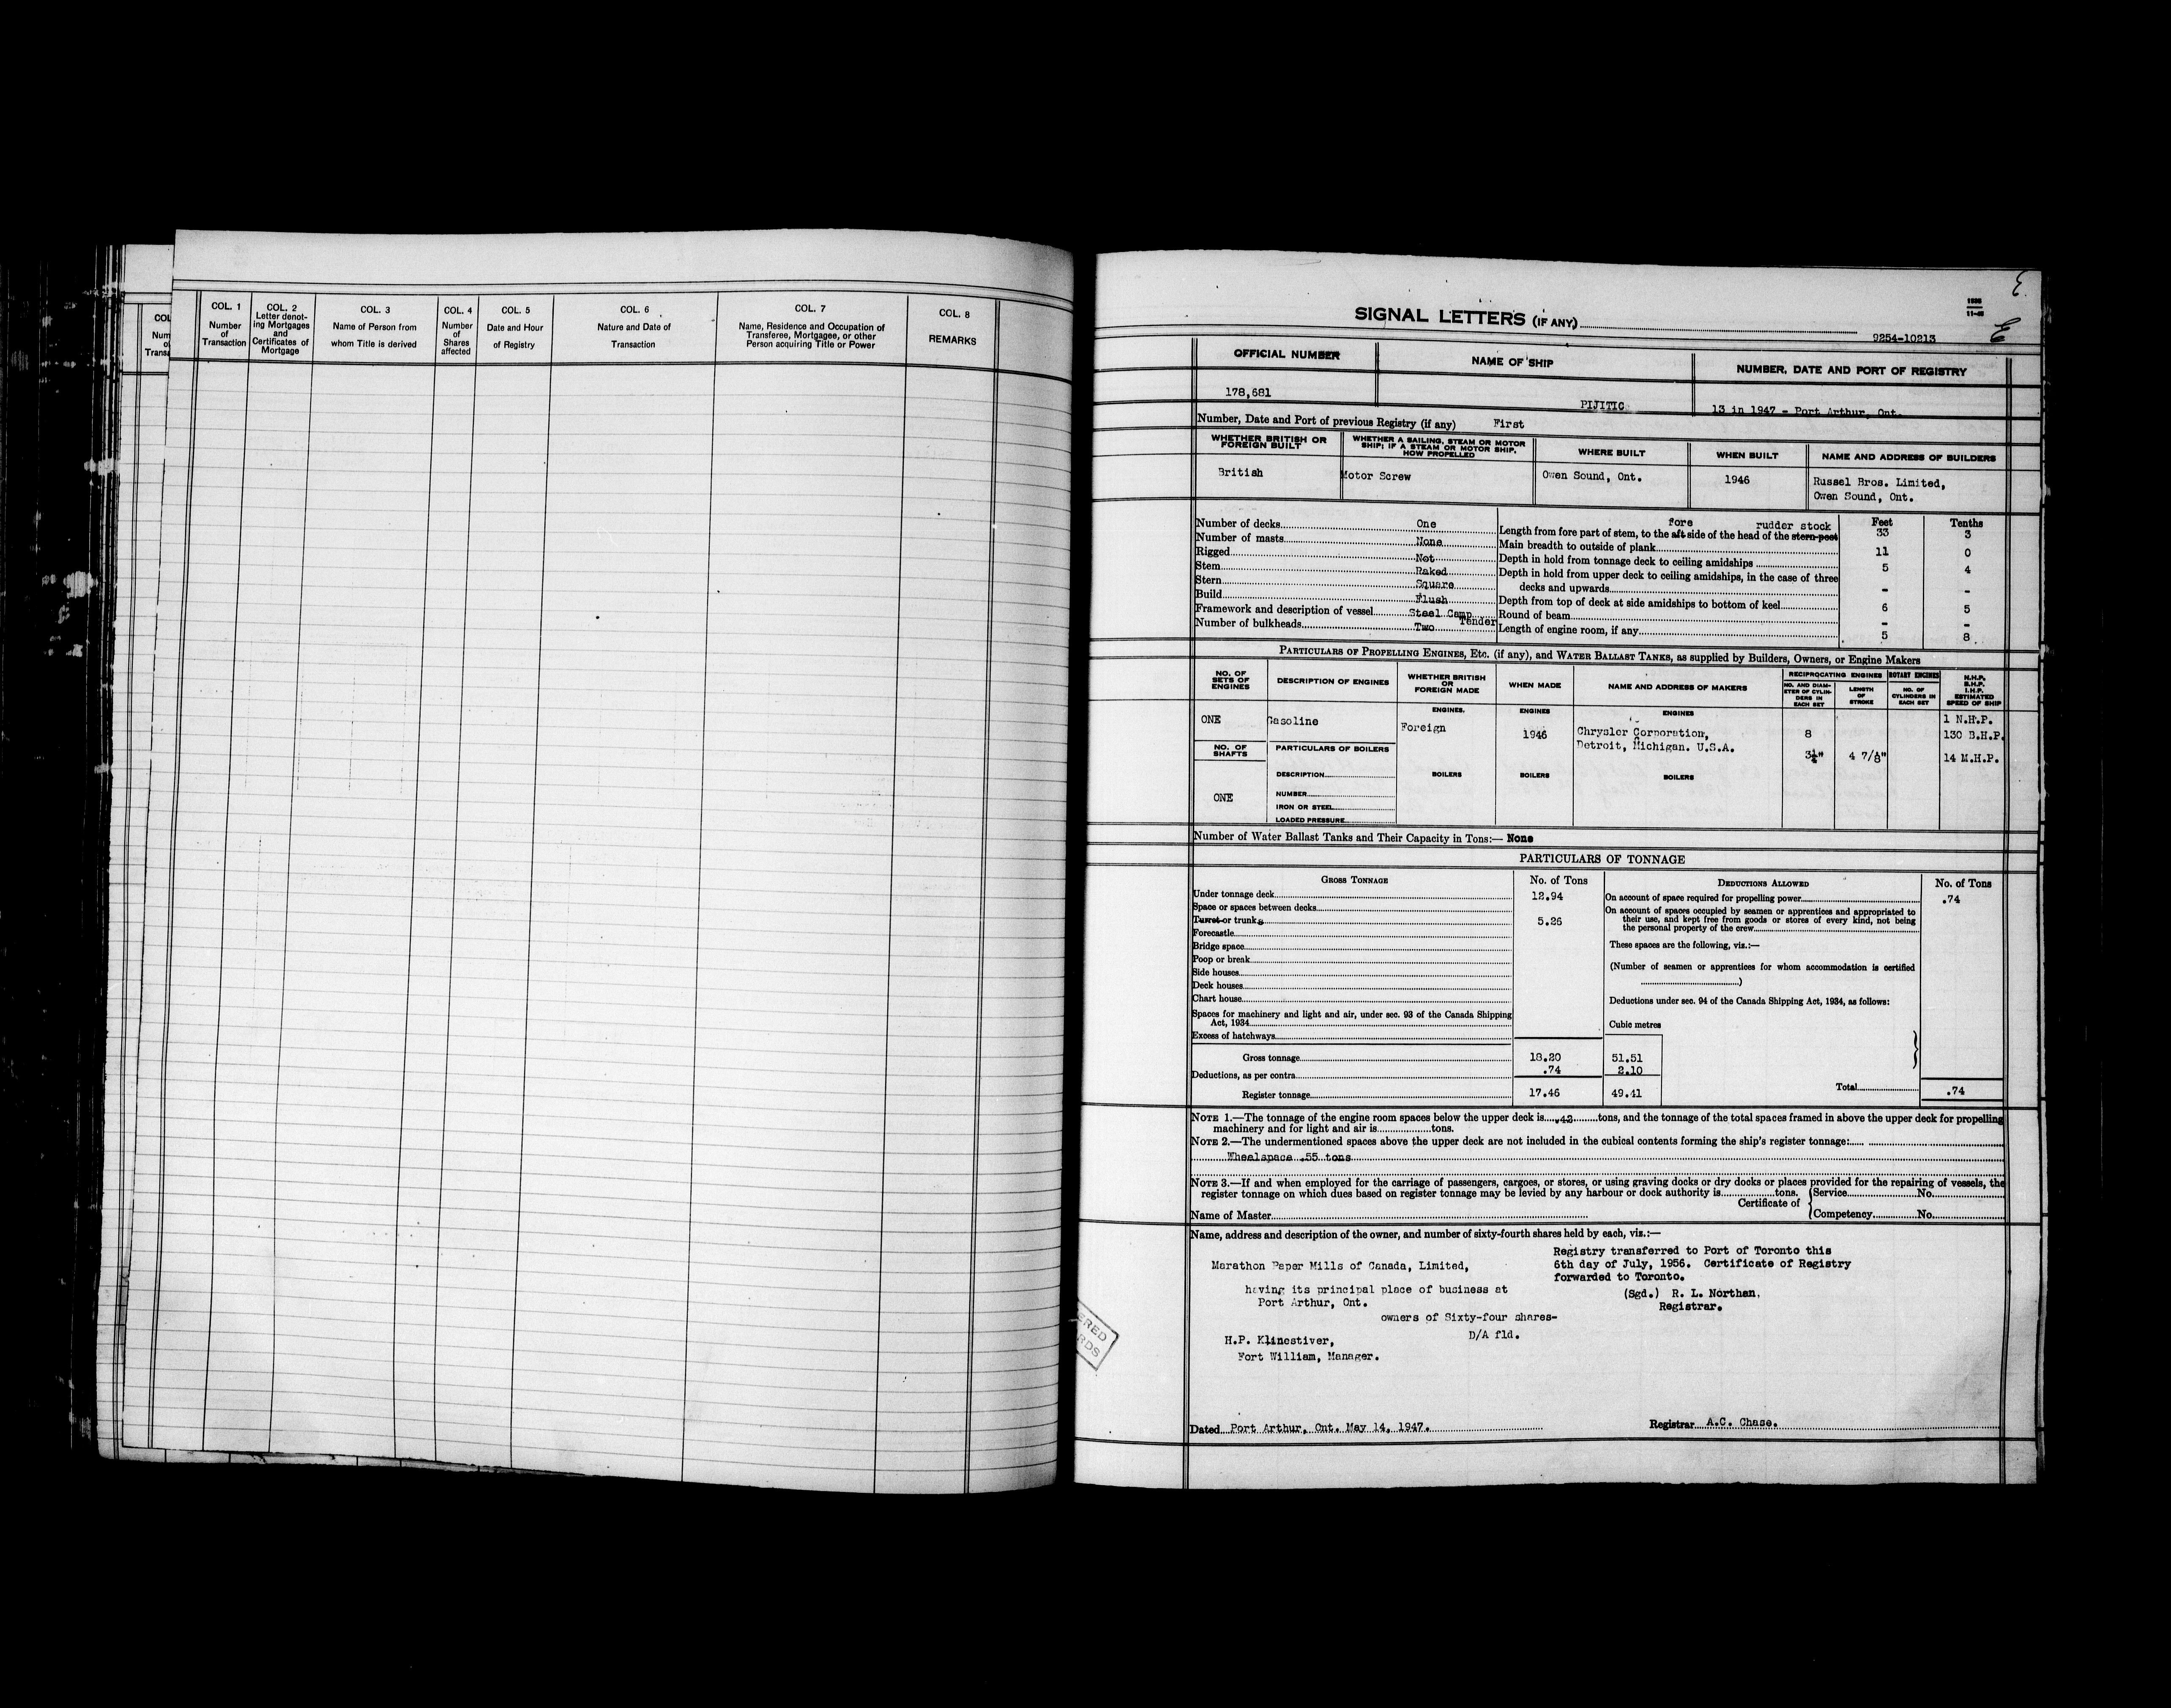 COL. 1
Number
of
Transaction
COL. 2
Letter denot-
ing Mortgages
and
Certificates of
Mortgage
COL. 3
Name of Person from
whom Title is derived
COL. 4
Number
of
Shares
affected
COL. 5
Date and Hour
of Registry
COL. 6
Nature and Date of
Transaction
COL. 7
Name, Residence and Occupation of
Transferee, Mortgagee, or other
Person acquiring Title or Power
COL. 8
REMARKS
SIGNAL LETTERS (IF ANY)
9254-10213
OFFICIAL NUMBER
NAME OF SHIP
NUMBER, DATE AND PORT OF REGISTRY
178,681
PIJITIC
13 in 1947 - Port Arthur, Ont.
Number, Date and Port of previous Registry (if any) First
WHETHER BRITISH OR
FOREIGN BUILT
WHETHER A SAILING, STEAM OR MOTOR
SHIP; IF A STEAM OR MOTOR SHIP,
HOW PROPELLED
WHERE BUILT
WHEN BUILT
NAME AND ADDRESS OF BUILDERS
British
Motor Screw
Owen Sound, Ont.
1946
Russel Bros. Limited,
Owen Sound, Ont.
Number of decks One
Number of masts None
Rigged Not
Stem Raked
Stern Square
Build Flush
Framework and description of vessel Steel Camp Tender
Number of bulkheads Two
Feet Tenths
fore rudder stock
Length from fore part of stem, to the aft side of the head of the stern-post 33 3
Main breadth to outside of plank 11 0
Depth in hold from tonnage deck to ceiling amidships 5 4
Depth in hold from upper deck to ceiling amidships, in the case of three
decks and upwards - -
Depth from top of deck at side amidships to bottom of keel 6 5
Round of beam - -
Length of engine room, if any 5 8
PARTICULARS OF PROPELLING ENGINES, ETC. (if any), and WATER BALLAST TANKS, as supplied by Builders, Owners, or Engine Makers
NO. OF
SETS OF
ENGINES
DESCRIPTION OF ENGINES
WHETHER BRITISH
OR
FOREIGN MADE
WHEN MADE
NAME AND ADDRESS OF MAKERS
RECIPROCATING ENGINES
NO. AND DIAM-
ETER OF CYLIN-
DERS IN
EACH SET
LENGTH
OF
STROKE
ROTARY ENGINES
NO. OF
CYLINDERS IN
EACH SET
N.H.P.
B.H.P.
I.H.P.
ESTIMATED
SPEED OF SHIP
ENGINES. ENGINES ENGINES
ONE
Gasoline
Foreign
1946
Chrysler Corporation,
Detroit, Michigan. U.S.A.
8
3¼"
4 7/8"
1 N.H.P.
130 B.H.P.
14 M.H.P.
NO. OF
SHAFTS
PARTICULARS OF BOILERS
DESCRIPTION
BOILERS BOILERS BOILERS
ONE
NUMBER
IRON OR STEEL
LOADED PRESSURE
Number of Water Ballast Tanks and Their Capacity in Tons:— None
PARTICULARS OF TONNAGE
GROSS TONNAGE
No. of Tons
DEDUCTIONS ALLOWED
No. of Tons
Under tonnage deck 12.94
Space or spaces between decks
Turret or trunks 5.26
Forecastle
Bridge space
Poop or break
Side houses
Deck houses
Chart house
Spaces for machinery and light and air, under sec. 93 of the Canada Shipping
Act, 1934
Excess of hatchways
Gross tonnage 18.20 51.51
Deductions, as per contra .74 2.10
Register tonnage 17.46 49.41
On account of space required for propelling power .74
On account of spaces occupied by seamen or apprentices and appropriated to
their use, and kept free from goods or stores of every kind, not being
the personal property of the crew
These spaces are the following, viz.:—
(Number of seamen or apprentices for whom accommodation is certified
)
Deductions under sec. 94 of the Canada Shipping Act, 1934, as follows:
Cubic metres
Total .74
NOTE 1.—The tonnage of the engine room spaces below the upper deck is .42 tons, and the tonnage of the total spaces framed in above the upper deck for propelling
machinery and for light and air is tons.
NOTE 2.—The undermentioned spaces above the upper deck are not included in the cubical contents forming the ship's register tonnage:
Wheelspace .55 tons
NOTE 3.—If and when employed for the carriage of passengers, cargoes, or stores, or using graving docks or dry docks or places provided for the repairing of vessels, the
register tonnage on which dues based on register tonnage may be levied by any harbour or dock authority is tons.
Name of Master
Certificate of
Service No.
Competency No.
Name, address and description of the owner, and number of sixty-fourth shares held by each, viz.:—
Marathon Paper Mills of Canada, Limited,
having its principal place of business at
Port Arthur, Ont.
owners of Sixty-four shares-
D/A fld.
H.P. Klinestiver,
Fort William, Manager.
Registry transferred to Port of Toronto this
6th day of July, 1956. Certificate of Registry
forwarded to Toronto.
(Sgd.) R. L. Northan,
Registrar.
Dated Port Arthur, Ont. May 14, 1947.
Registrar A.C. Chase.